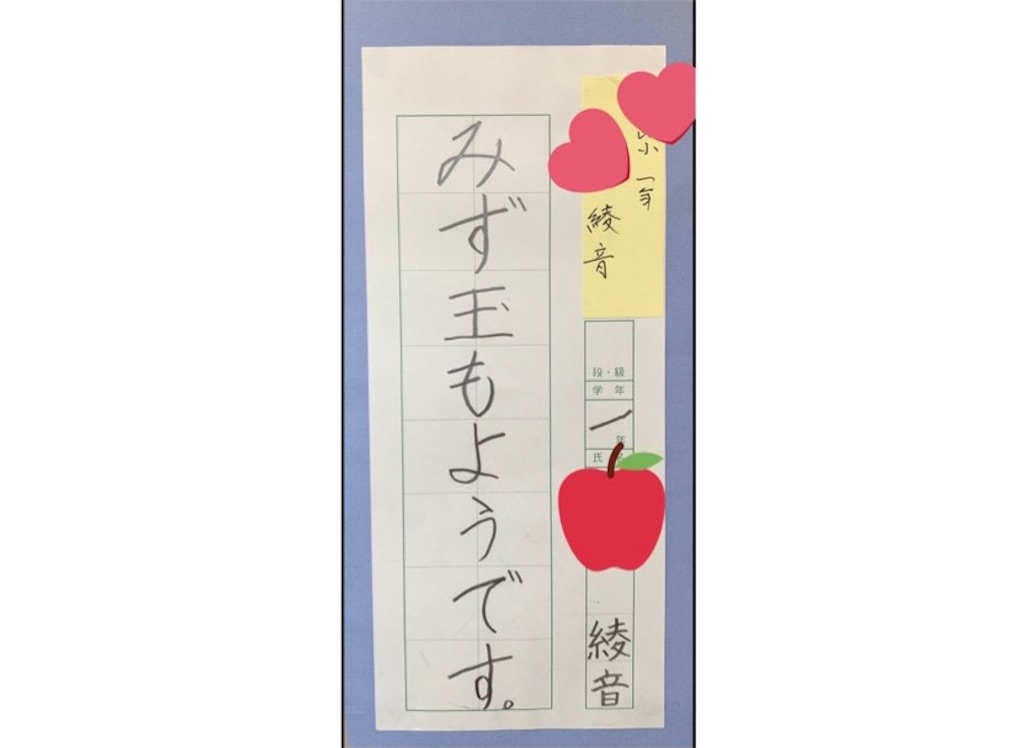 小一年
綾音
段・級
学年
一年
氏
綾音
みず玉もようです。